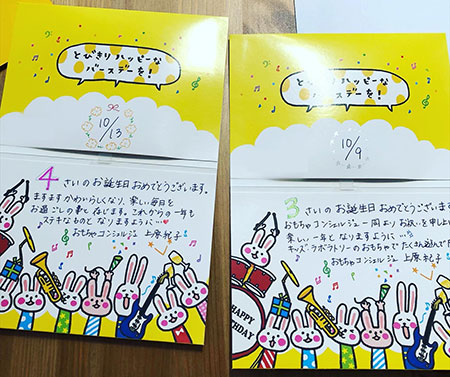 とびきりハッピーな
バースデーを！
10/13
4さいのお誕生日おめでとうございます。
ますますかわいらしくなり、楽しい毎日を
お過ごしの事と存じます。これからの一年も
ステキなものとなりますように…♥
おもちゃコンシェルジュ 上原紀子
とびきりハッピーな
バースデーを！
10/9
3さいのお誕生日おめでとうございます。
おもちゃコンシェルジュ一同よりお祝いを申し上げ
楽しい一年となりますように…
キッズ・ラボラトリーのおもちゃでたくさん遊んで
おもちゃコンシェルジュ 上原紀子
HAPPY
BIRTHDAY